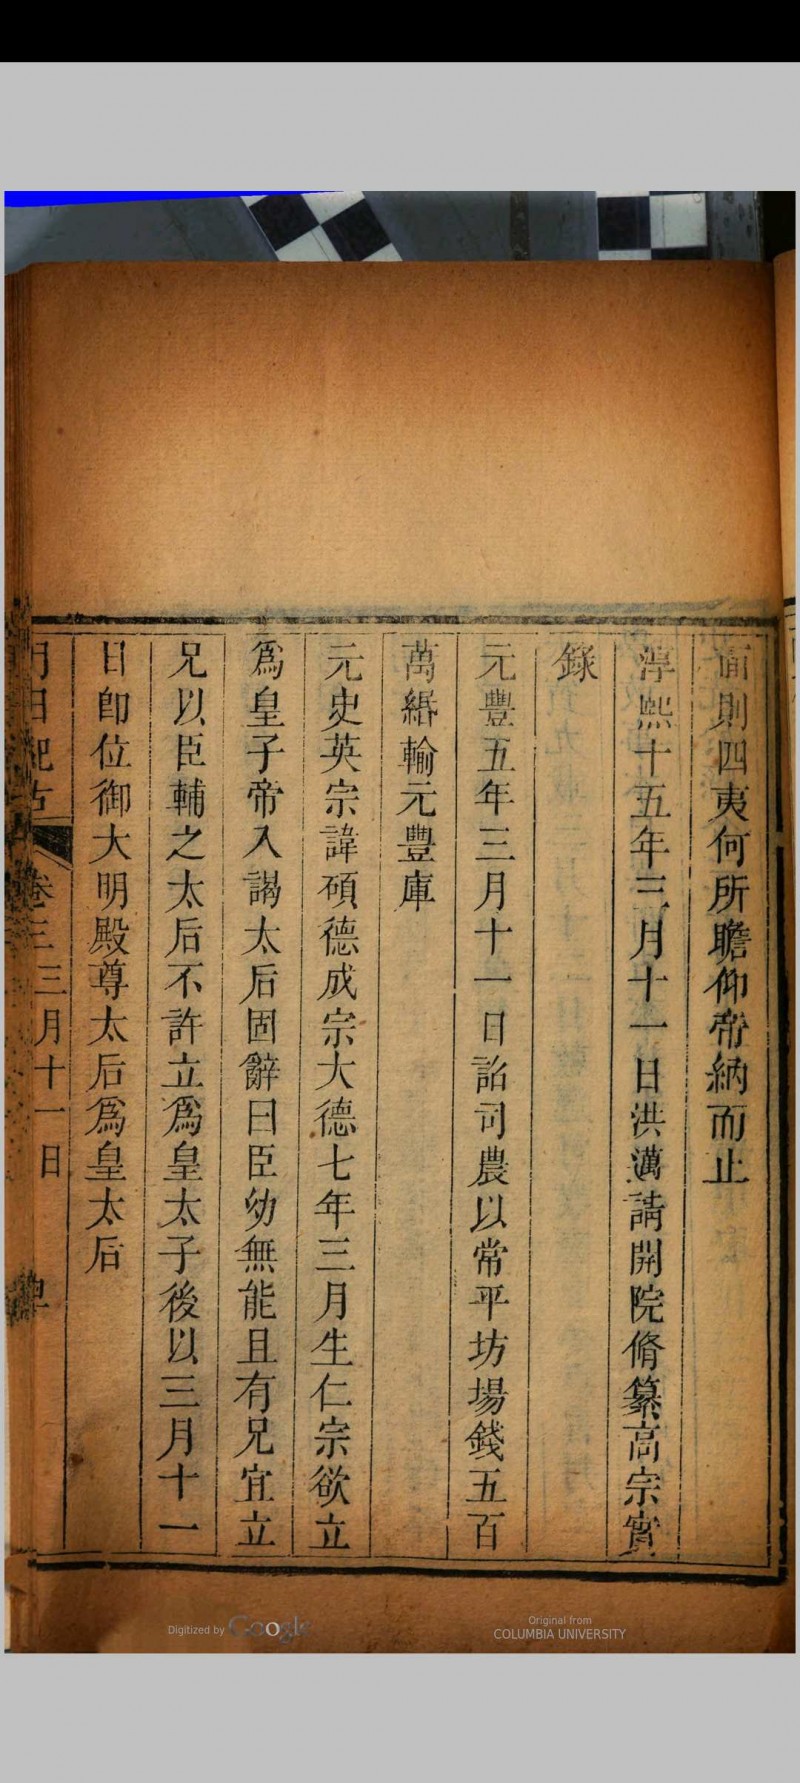 面則四夷何所瞻仰帝納而止
淳熙十五年三月十一日洪邁請開院脩纂高宗實
錄
元豐五年三月十一日詔司農以常平坊場錢五百
萬緡輸元豐庫
元史英宗諱碩德成宗大德七年三月生仁宗欲立
爲皇子帝入謁太后固辭曰臣幼無能且有兄宜立
兄以臣輔之太后不許立爲皇太子後以三月十一
日卽位御大明殿尊太后爲皇太后
月日紀古 卷三 三月十一日
Digitized by Google
Original from
COLUMBIA UNIVERSITY